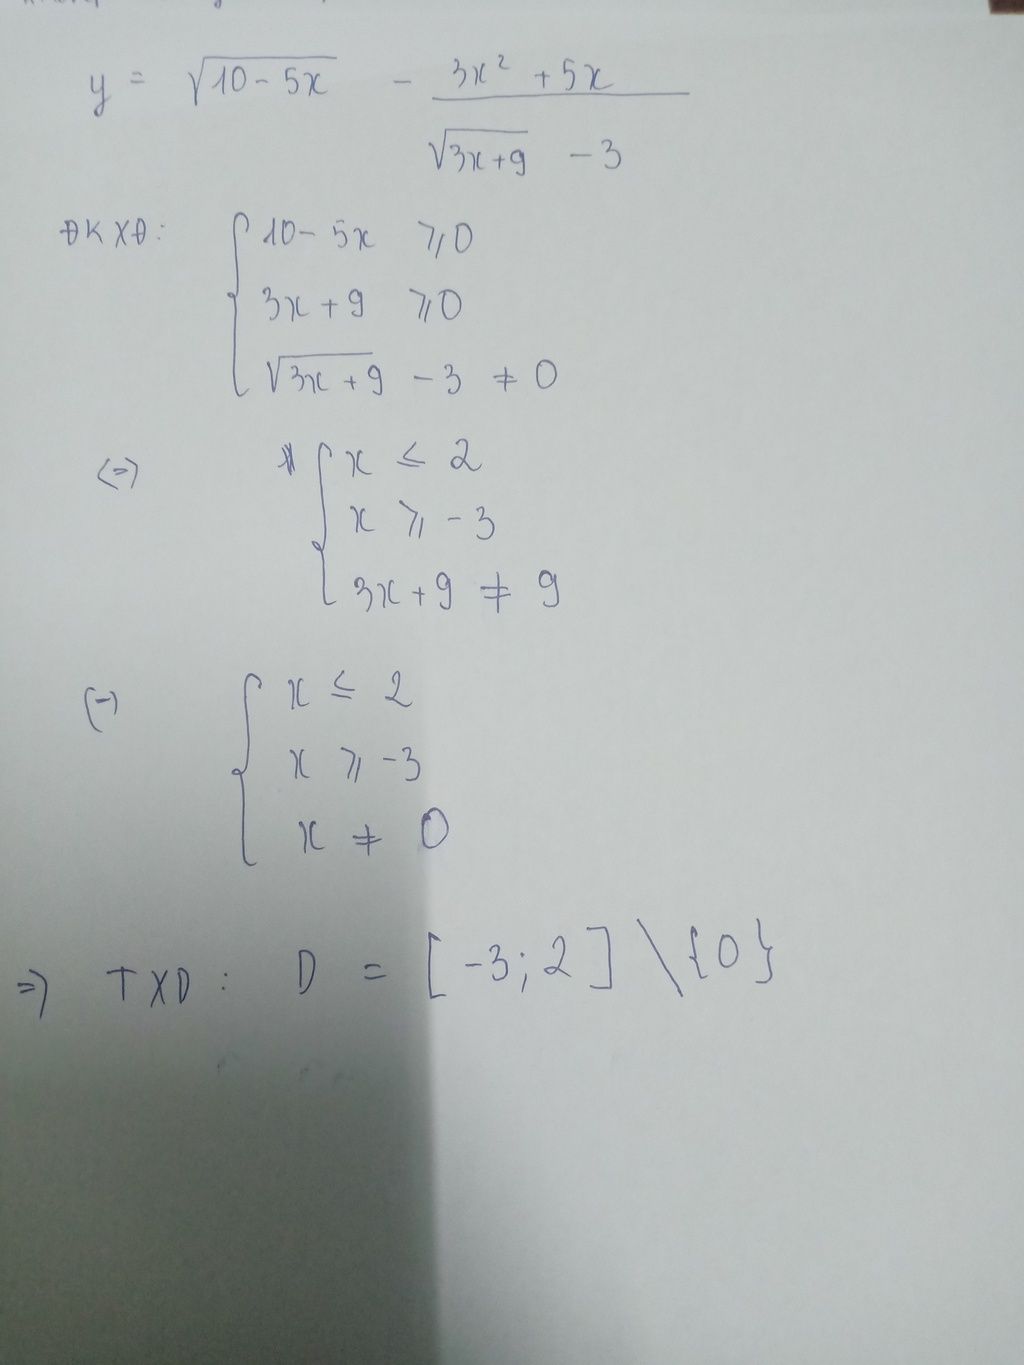 y = √(10 - 5x) - (3x² + 5x) / (√(3x+9) - 3)
ĐKXĐ: { 10 - 5x ⩾ 0
3x + 9 ⩾ 0
√(3x+9) - 3 ≠ 0
<=> { x ≤ 2
x ⩾ -3
3x + 9 ≠ 9
(=) { x ≤ 2
x ⩾ -3
x ≠ 0
=> TXD: D = [-3; 2] \ {0}